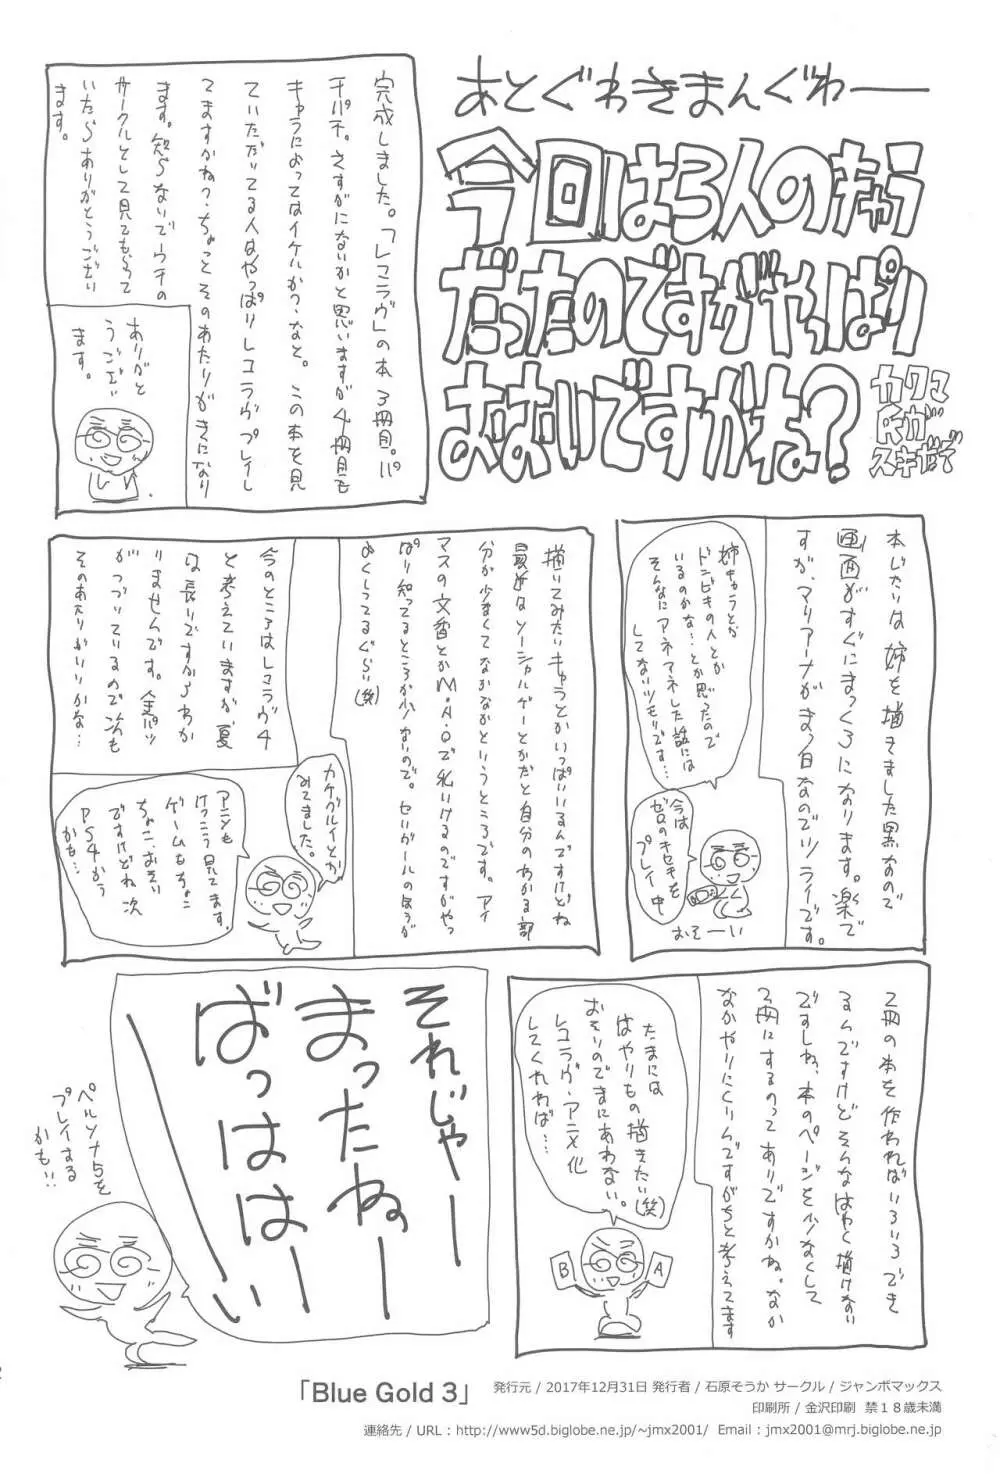 あとぐわきまんぐわー
今回は3人のキャラ
だったのですがやっぱり
おおいですかね?
カワマ
スキだぞ
完成しました。「レコラヴ」の本3冊目。パ
チパチ。さすがにないかと思いますが4冊目も
キャラによってはイケルかつ、なと。この本を見
ていただいてる人はやっぱりレコラヴプレイし
てますかね?ちょっとそのあたりがきになり
ます。知らないでウチの
サークルとして見てもらって
いたらありがとうござい
ます。
ありがと
うござい
ます。
本じたいは姉を描きました黒なので
画面がすぐにまっくろになります。楽で
すが、マリアーナがまっ白なのでツライです。
姉キャラとか
ドンビキの人とか
いるのかな…とか思ったので
そんなにアネアネした話には
してないツモリです…
今は
ゼロのキセキを
プレイ中
おそーい
描いてみたいキャラとかいっぱいいるんですけどね
最近なソーシャルゲーとかだと自分のわかる部
分が少なくてなかなかというところです。アイ
マスの文香とかM・A・Oで乳いけるのですがやっ
ぱり知ってるところが少ないので。セレガールのほうが
よくしってるぐらい(笑)
今のところはレコラヴ4
と考えていますが、夏
は長いですからわか
りませんです。金パツ
がつづいているので次も
そのあたりがいいかな…
カケグルイとか
みてました。
アニメも
けっこう見てます。
ゲームもちょこ
ちょこ、おそい
ですけどね次
PS4かう
かも…
2冊の本を作われればいろいろでき
るんですけどそんなはやく描けない
ですしね、本のページを少なくして
2冊にするのってありですかね。なか
なかやりにくいんですがちと考えてます
たまには
はやりもの描きたい(笑)
おそいのでまにあわない。
レコラヴ・アニメ化
してくれれば…
B
A
それじゃー
まったねー
ばっははーい
ペルソナ5を
プレイする
かも!!
「Blue Gold 3」
発行元 / 2017年12月31日 発行者 / 石原そうか サークル / ジャンボマックス
印刷所 / 金沢印刷 禁18歳未満
連絡先 / URL : http://www5d.biglobe.ne.jp/~jmx2001/ Email : jmx2001@mrj.biglobe.ne.jp
2